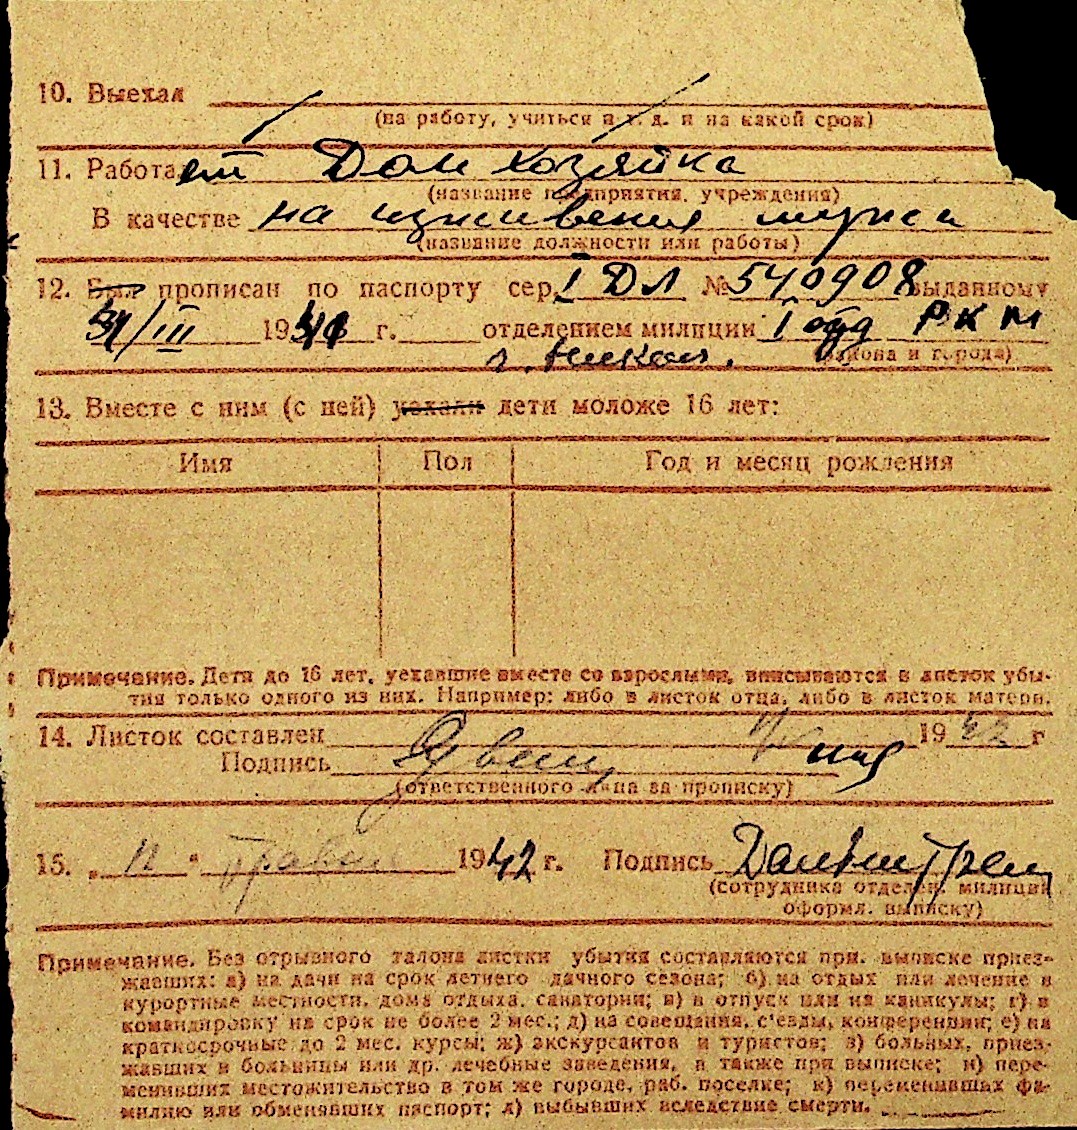 10. Выехал
(на работу, учиться и т. д. и на какой срок)
11. Работает Домхозяйка
(название предприятия, учреждения)
В качестве на иждивении мужа
(название должности или работы)
12. Был прописан по паспорту сер. I ДЛ № 540908 выданному
31/III 1941 г. отделением милиции I отд РКМ
г. Никол. (района и города)
13. Вместе с ним (с ней) уехали дети моложе 16 лет:
Имя Пол Год и месяц рождения
Примечание. Дети до 16 лет, уехавшие вместе со взрослыми, вписываются в листок убы-
тия только одного из них. Например: либо в листок отца, либо в листок матери.
14. Листок составлен 1942 г
Подпись
(ответственного лица за прописку)
15. „11" травня 1942 г. Подпись
(сотрудника отделен. милиции
оформл. выписку)
Примечание. Без отрывного талона листки убытия составляются при выписке приез-
жавших: а) на дачи на срок летнего дачного сезона; б) на отдых или лечение в
курортные местности, дома отдыха, санатории; в) в отпуск или на каникулы; г) в
командировку на срок не более 2 мес.; д) на совещания, с'езды, конференции; е) на
краткосрочные до 2 мес. курсы; ж) экскурсантов и туристов; з) больных, приез-
жавших в больницы или др. лечебные заведения, а также при выписке; и) пере-
менивших местожительство в том же городе, раб. поселке; к) переменивших фа-
милию или обменявших паспорт; л) выбывших вследствие смерти.